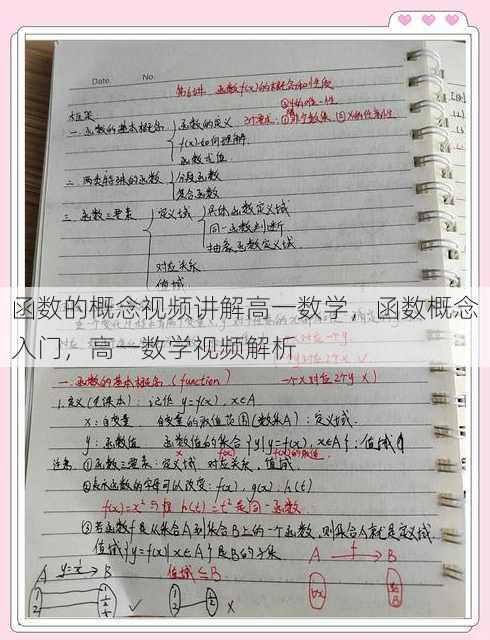 Date. No.
第6讲 函数f(x)的概念和性质
②y的唯一性
框架
3个要求:①非空数集 ③x的任意性
一、函数的基本概念 函数的定义
f(x)如何理解
函数求值
二、两类特殊的函数 分段函数
复合函数
三、函数三要素 定义域 具体函数定义域
同一函数判断
抽象函数定义域
对应关系
值域
函数的概念视频讲解高一数学,函数概念
入门,高一数学视频解析
一个x对应一个y
一个x对应2个y ×)
一、函数的基本概念 (function)
1.定义(见课本):记作 y=f(x), x∈A
x:自变量 自变量的取值范围(数集A):定义域.
y:函数值 函数值的集合{y|y=f(x), x∈A}:值域
注意 ①函数三要素:定义域 对应关系、值域
f(x)的取值
②表示函数的字母可以改变:f(x), g(x), h(t)
f(x)=x² 与 h(t)=t² 是同一函数.
③若函数f是从集合A到集合B上的一个函数,则集合A就是定义域
值域{y=f(x)|x∈A}是B的子集
A f B
A B 值域⊆B